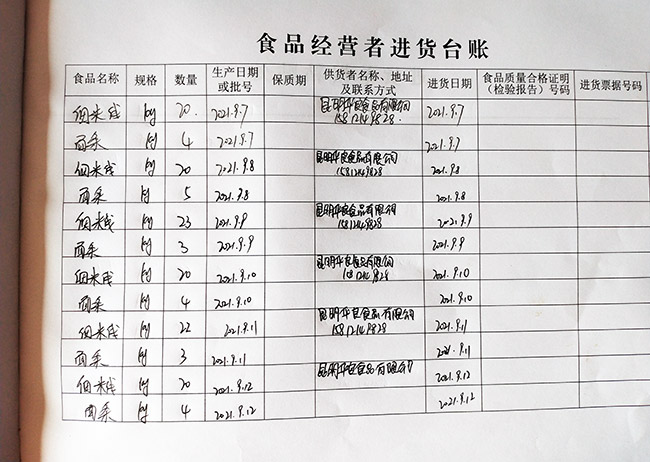 食品经营者进货台账
食品名称 规格 数量 生产日期或批号 保质期 供货者名称、地址及联系方式 进货日期 食品质量合格证明（检验报告）号码 进货票据号码
细米线 kg 20. 2021.9.7 昆明华良食品有限公司 15812149828. 2021.9.7
面条 kg 4 2021.9.7 2021.9.7
细米线 kg 20 2021.9.8 昆明华良食品有限公司 15812149828 2021.9.8
面条 kg 5 2021.9.8 2021.9.8
细米线 kg 23 2021.9.9 昆明华良食品有限公司 15812149828 2021.9.9
面条 kg 3 2021.9.9 2021.9.9
细米线 kg 20 2021.9.10 昆明华良食品有限公司 2021.9.10
面条 kg 4 2021.9.10 2021.9.10
细米线 kg 22 2021.9.11 昆明华良食品有限公司 15812149828 2021.9.11
面条 kg 3 2021.9.11 2021.9.11
细米线 kg 20 2021.9.12 昆明华良食品有限公司 2021.9.12
面条 kg 4 2021.9.12 2021.9.12